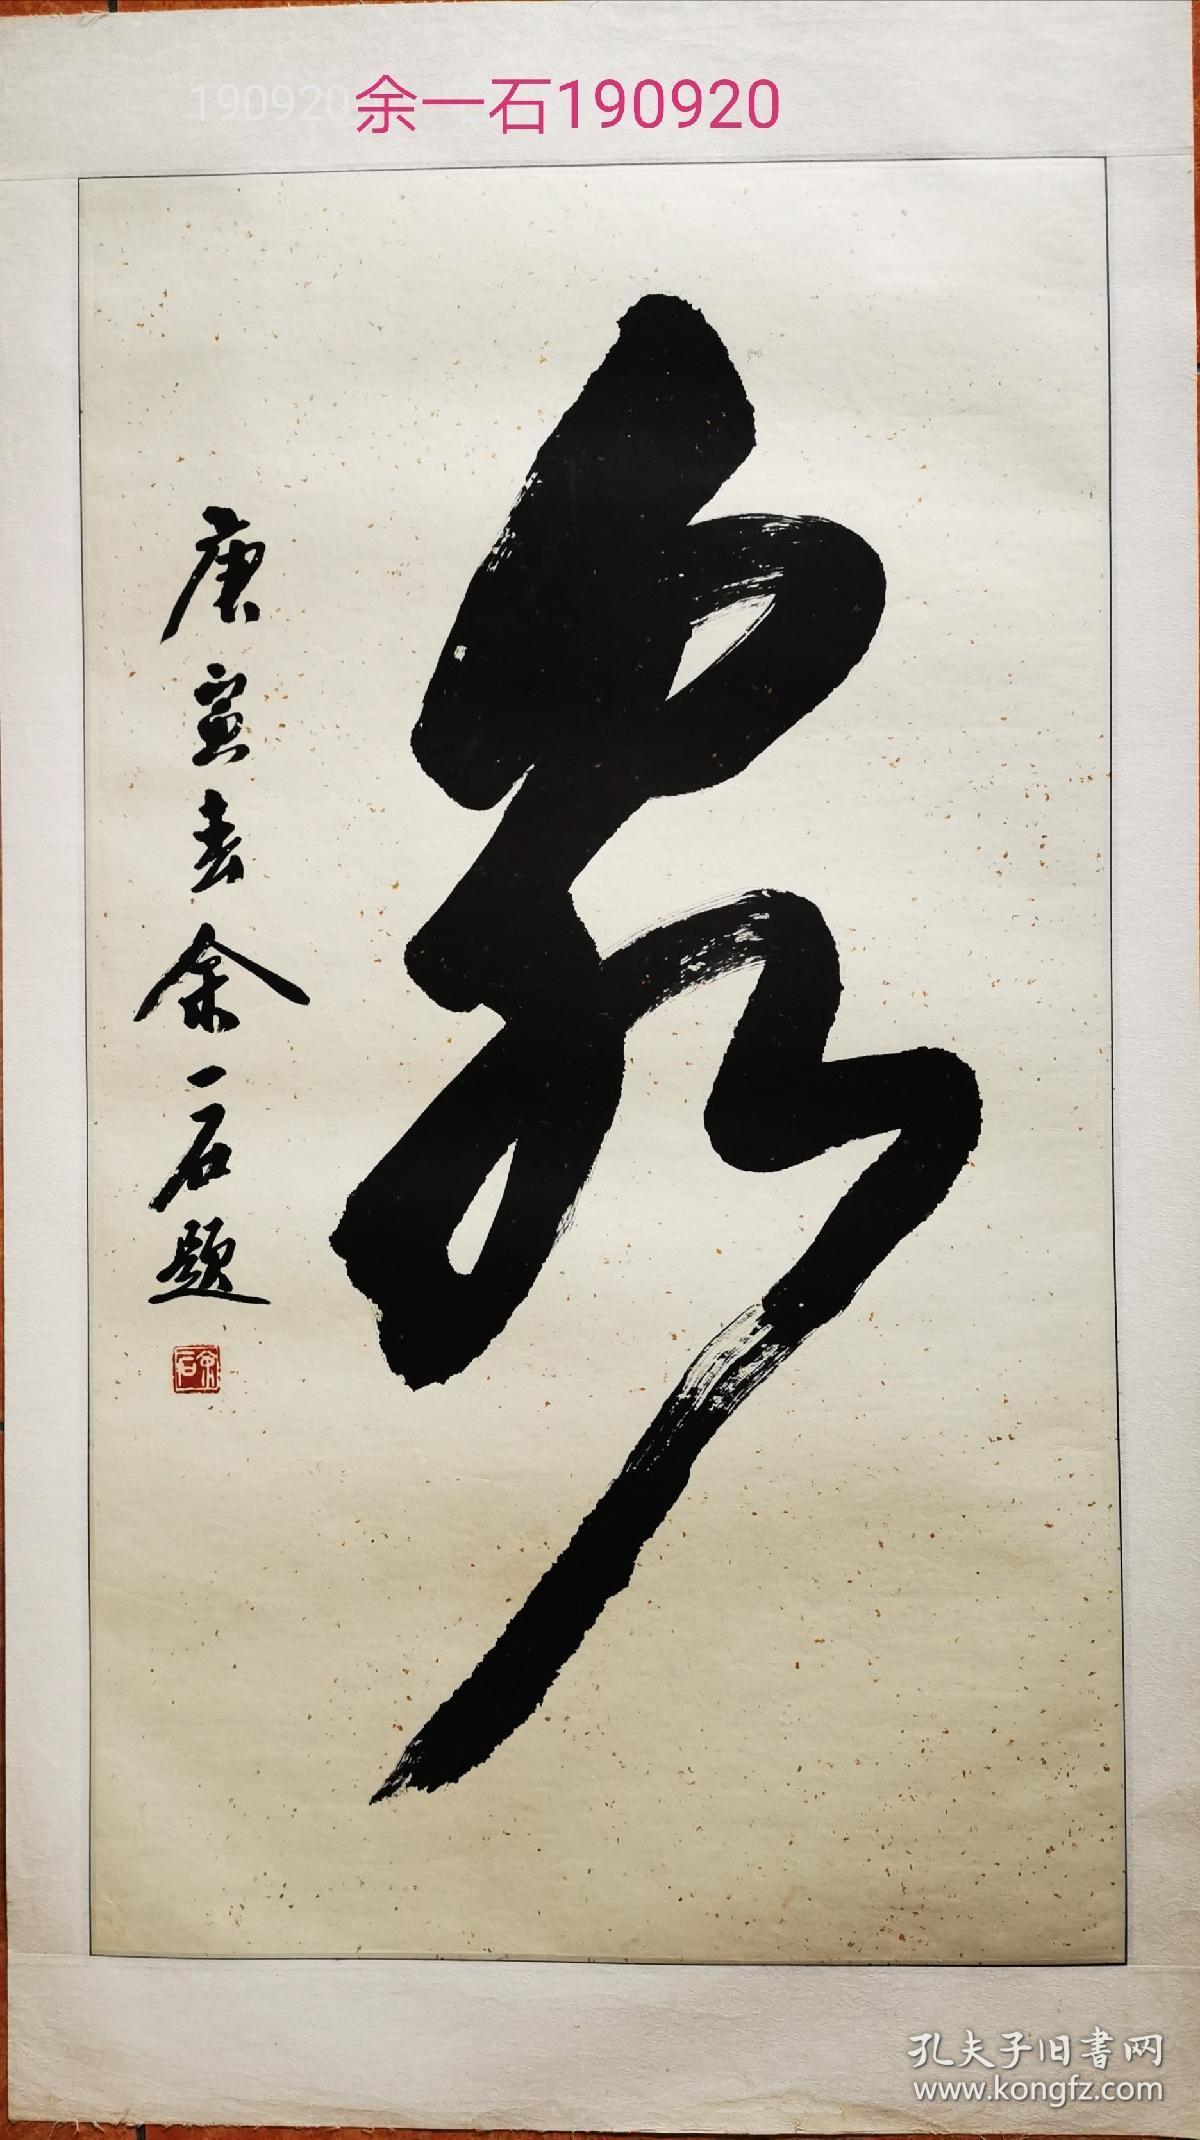 190920
余一石190920
庚寅春余一石题
余石
孔夫子旧書网
www.kongfz.com